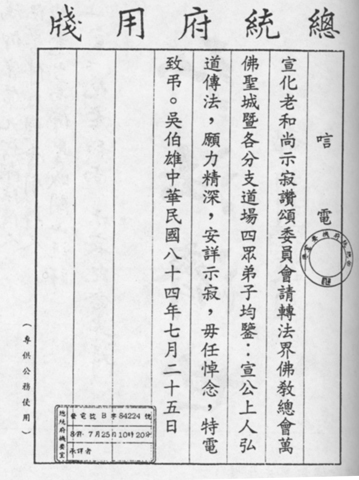 總統府用牋
唁電
宣化老和尚示寂讚頌委員會請轉法界佛教總會萬
佛聖城暨各分支道場四眾弟子均鑒：宣公上人弘
道傳法，願力精深，安詳示寂，毋任悼念，特電
致弔。吳伯雄中華民國八十四年七月二十五日
（專供公務使用）
總統府機要室
發電號 B字84224號
7月25日10時20分
承譯者